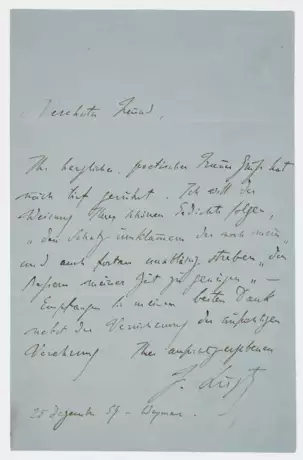 Verehrter Freund,
Ihr herzlicher, poetischer Trauer Gruß hat
mich tief gerührt. Ich will der
Weisung Ihres schönen Gedichts folgen,
"den Schatz umklammern der noch mein"
und auch fortan unablässig streben "den
meiner Zeit zu genügen" —
Empfangen Sie meinen besten Dank
nebst der Versicherung der aufrichtigen
Verehrung Ihres aufrichtig ergebenen
F. Liszt
25 Dezember 59 – Weymar.